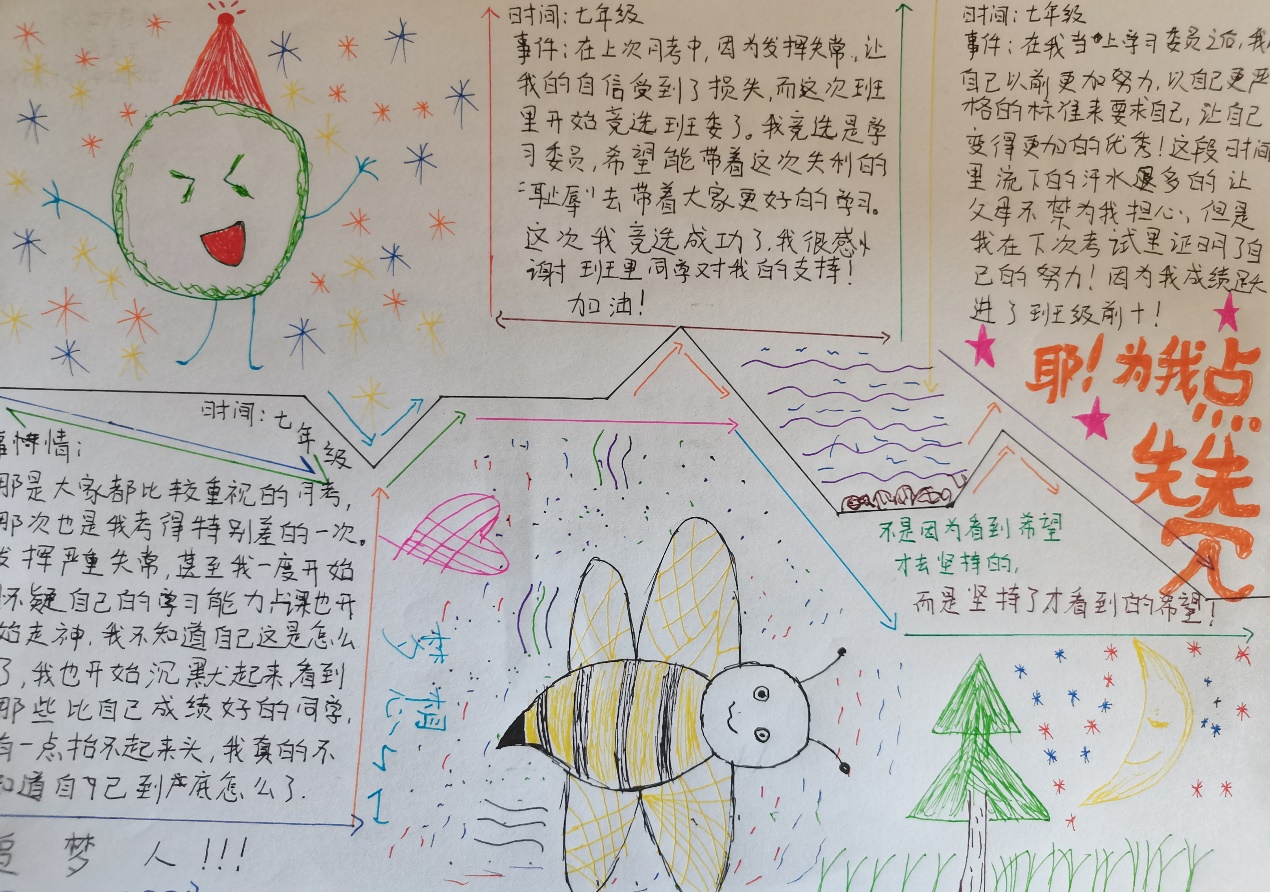 时间：七年级
事件：在上次月考中，因为发挥失常，让
我的自信受到了损失，而这次班
里开始竞选班委了。我竞选是学
习委员，希望能带着这次失利的
“耻辱”去带着大家更好的学习。
这次我竞选成功了，我很感
谢班里同学对我的支持！
加油！
时间：七年级
事件：在我当上学习委员之后，我
自己以前更加努力，以自己更严
格的标准来要求自己，让自己
变得更加的优秀！这段时间
里流下的汗水更多的让
父母不禁为我担心，但是
我在下次考试里证明了自
己的努力！因为我成绩跃
进了班级前十！
耶！为我点
先先
不是因为看到希望
才去坚持的，
而是坚持了才看到的希望！
时间：七年级
事件情：
那是大家都比较重视的月考，
那次也是我考得特别差的一次。
发挥严重失常，甚至我一度开始
怀疑自己的学习能力，上课也开
始走神，我不知道自己这是怎么
了，我也开始沉默起来，看到
那些比自己成绩好的同学，
有一点抬不起来头，我真的不
知道自己到底怎么了．
梦想
梦 人！！！